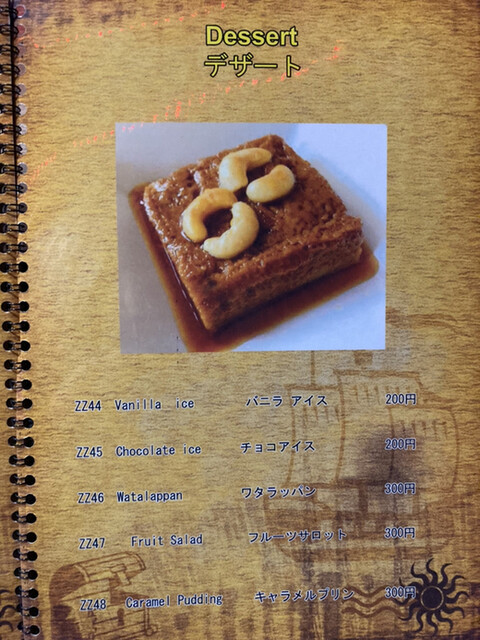 Dessert
デザート
ZZ44 Vanilla ice バニラ アイス 200円
ZZ45 Chocolate ice チョコアイス 200円
ZZ46 Watalappan ワタラッパン 300円
ZZ47 Fruit Salad フルーツサロット 300円
ZZ48 Caramel Pudding キャラメルプリン 300円